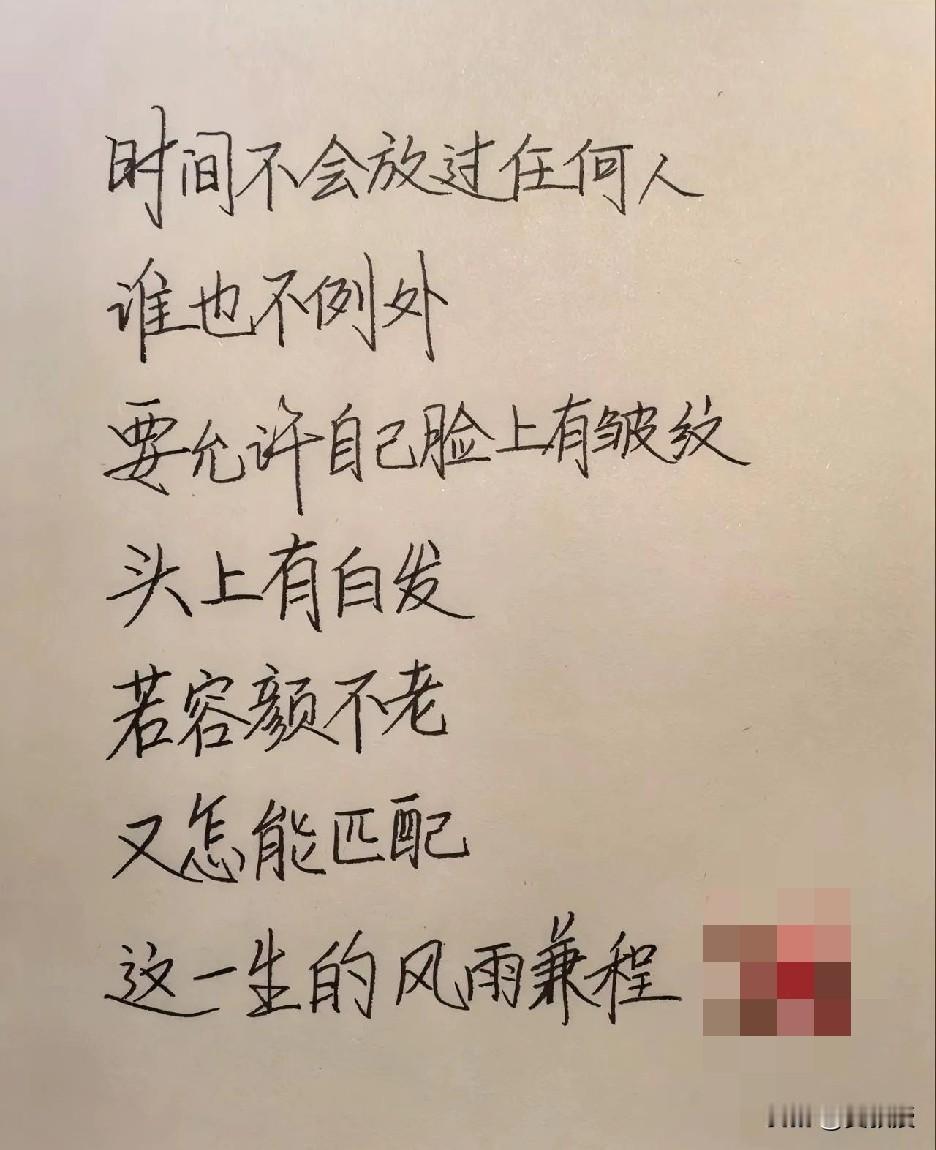 时间不会放过任何人
谁也不例外
要允许自己脸上有皱纹
头上有白发
若容颜不老
又怎能匹配
这一生的风雨兼程